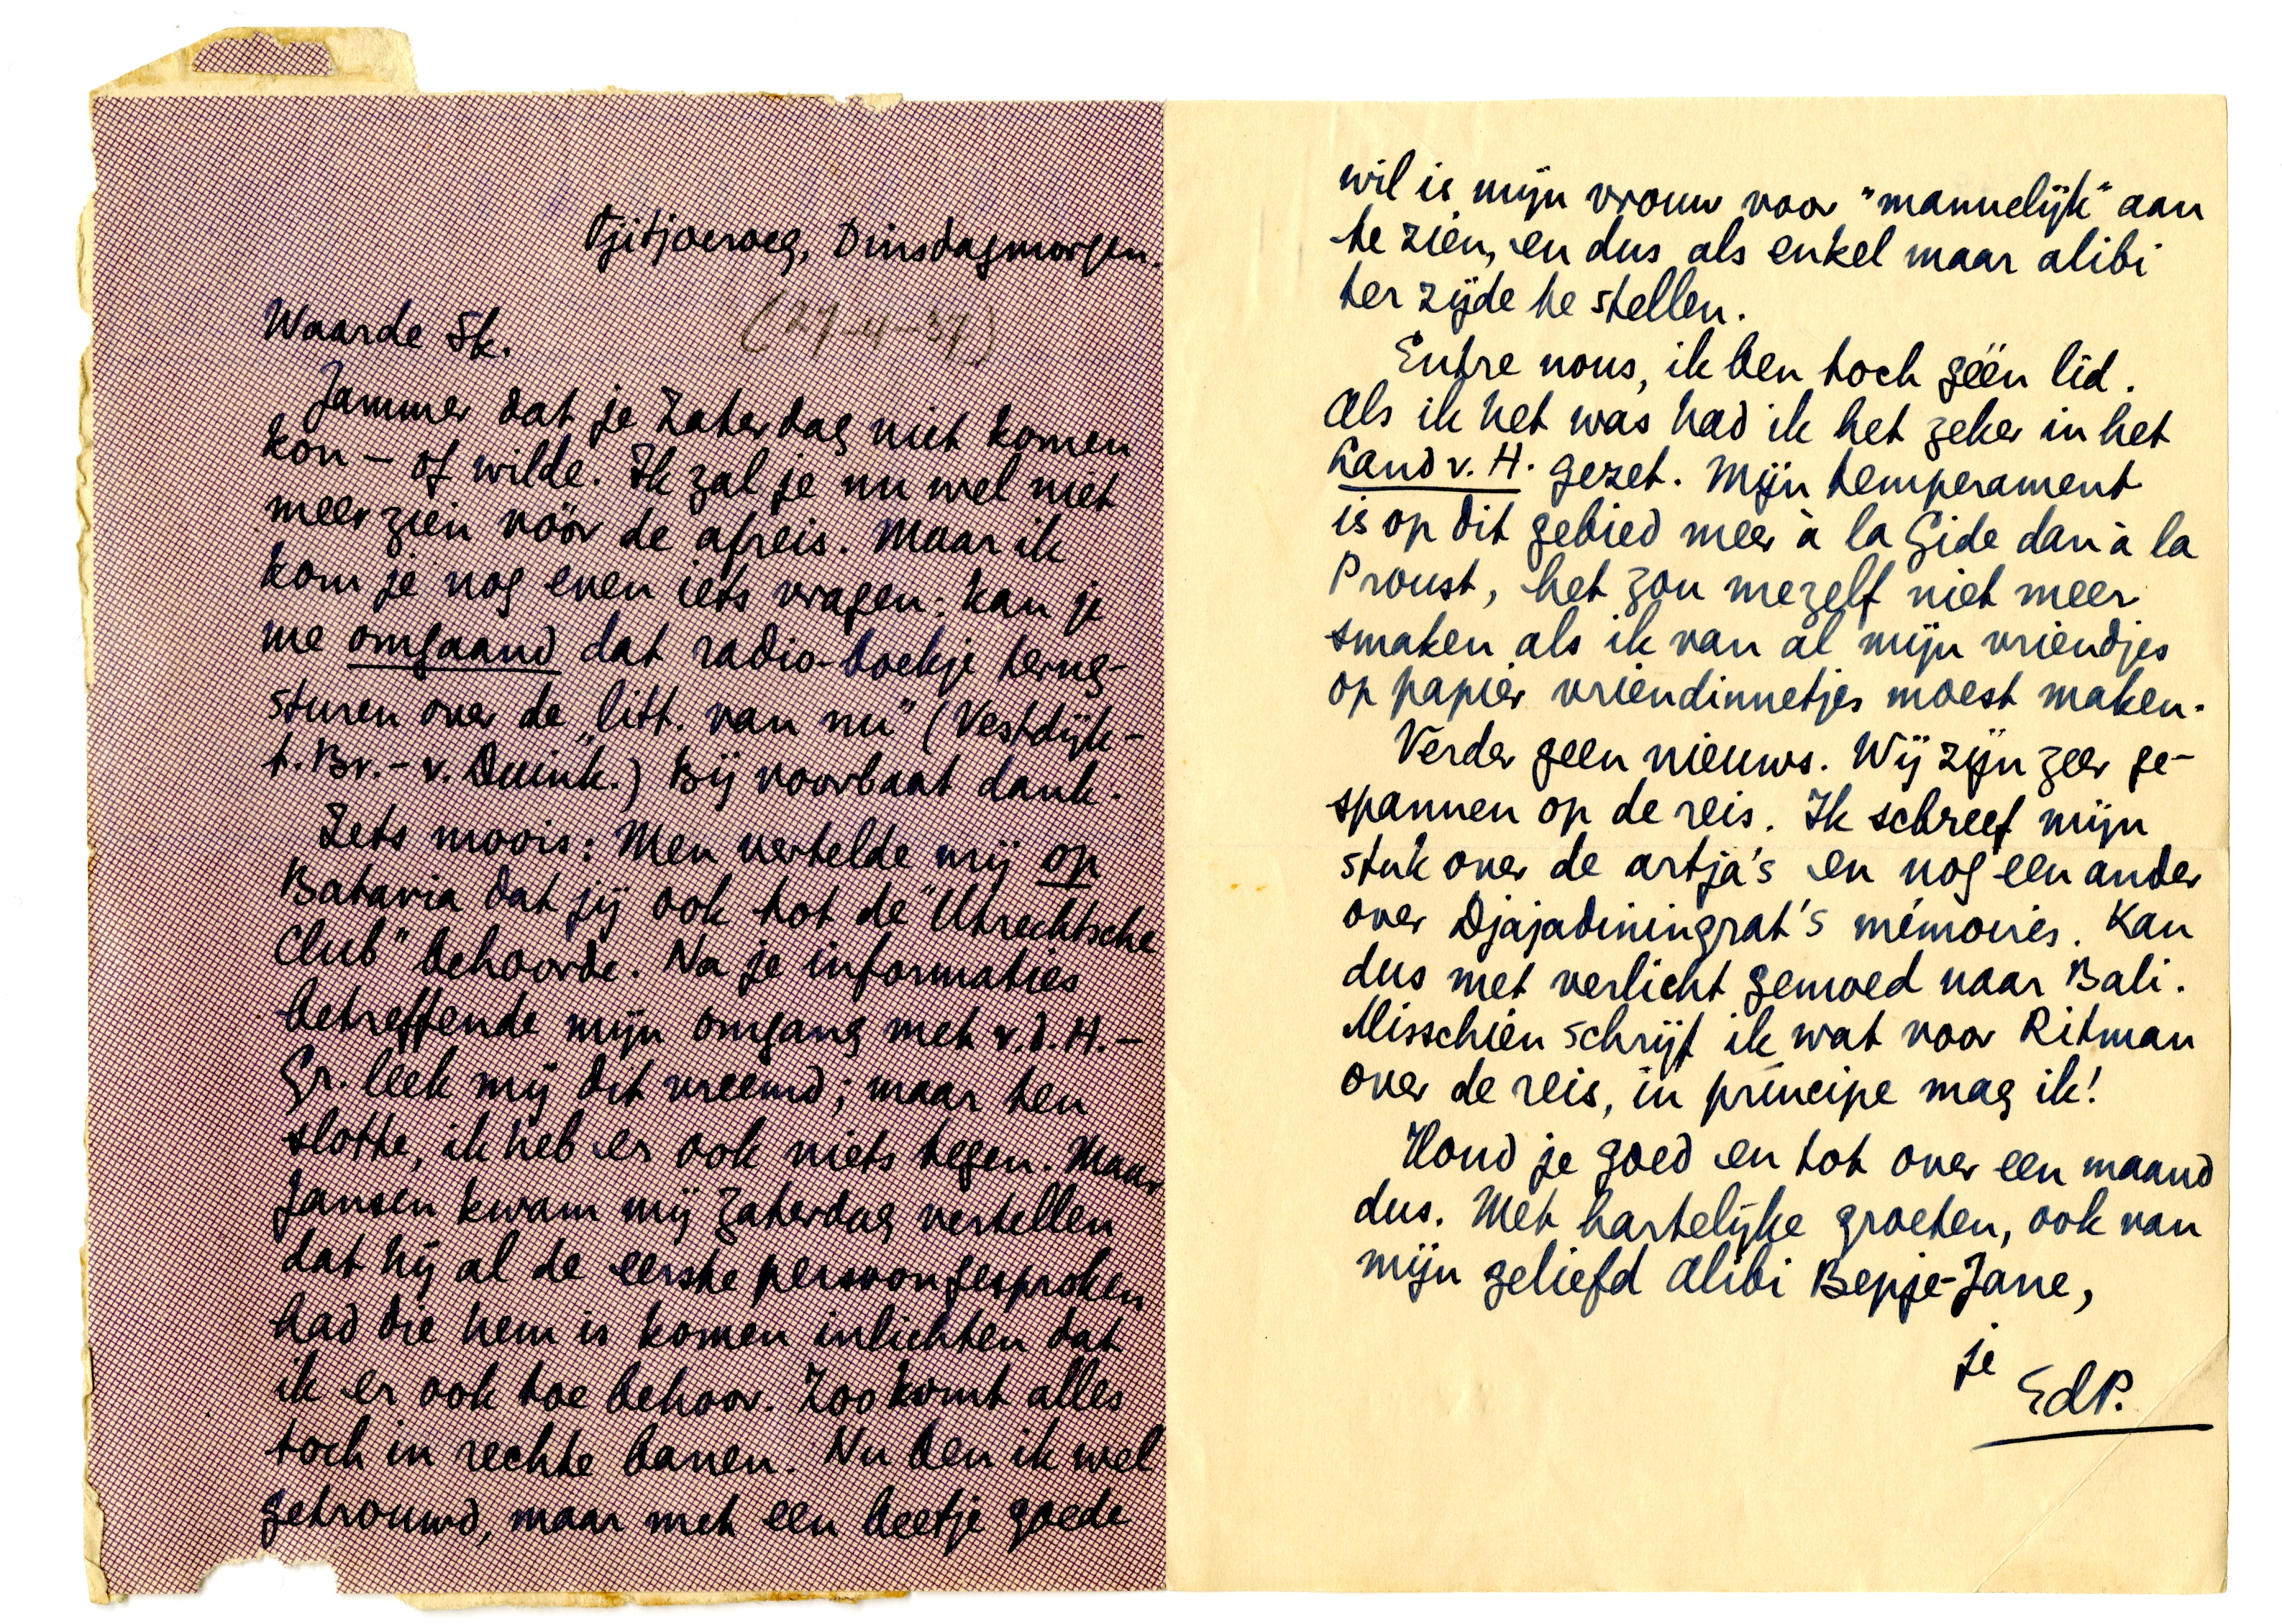 Tjitjoeroeg, Dinsdagmorgen.
(27-4-37)
Waarde Sk.
Jammer dat je Zaterdag niet komen
kon – of wilde. Ik zal je nu wel niet
meer zien vóór de afreis. Maar ik
kom je nog even iets vragen: kan je
me omgaand dat radio-boekje terug-
sturen over de „litt. van nu" (Vestdijk –
t. Br. – v. Duink.) Bij voorbaat dank.
Iets moois: Men vertelde mij op
Batavia dat jij ook tot de "Utrechtsche
Club" behoorde. Na je informaties
betreffende mijn omgang met v.d. H. –
Gr. leek mij dit vreemd; maar ten
slotte, ik heb er ook niets tegen. Maar
Jansen kwam mij Zaterdag vertellen
dat hij al de eerste persoon gesproken
had die hem is komen inlichten dat
ik er ook toe behoor. Zoo komt alles
toch in rechte banen. Nu ben ik wel
getrouwd, maar met een beetje goede
wil is mijn vrouw voor "mannelijk" aan
te zien, en dus als enkel maar alibi
ter zijde te stellen.
Entre nous, ik ben toch géén lid.
Als ik het was had ik het zeker in het
Land v. H. gezet. Mijn temperament
is op dit gebied meer à la Gide dan à la
Proust, het zou mezelf niet meer
smaken als ik van al mijn vriendjes
op papier vriendinnetjes moest maken.
Verder geen nieuws. Wij zijn zeer ge-
spannen op de reis. Ik schreef mijn
stuk over de artja's en nog een ander
over Djajadiningrat's mémoires. Kan
dus met verlicht gemoed naar Bali.
Misschien schrijf ik wat voor Ritman
over de reis, in principe mag ik!
Houd je goed en tot over een maand
dus. Met hartelijke groeten, ook van
mijn geliefd alibi Bepje-Jane,
je
EdP.